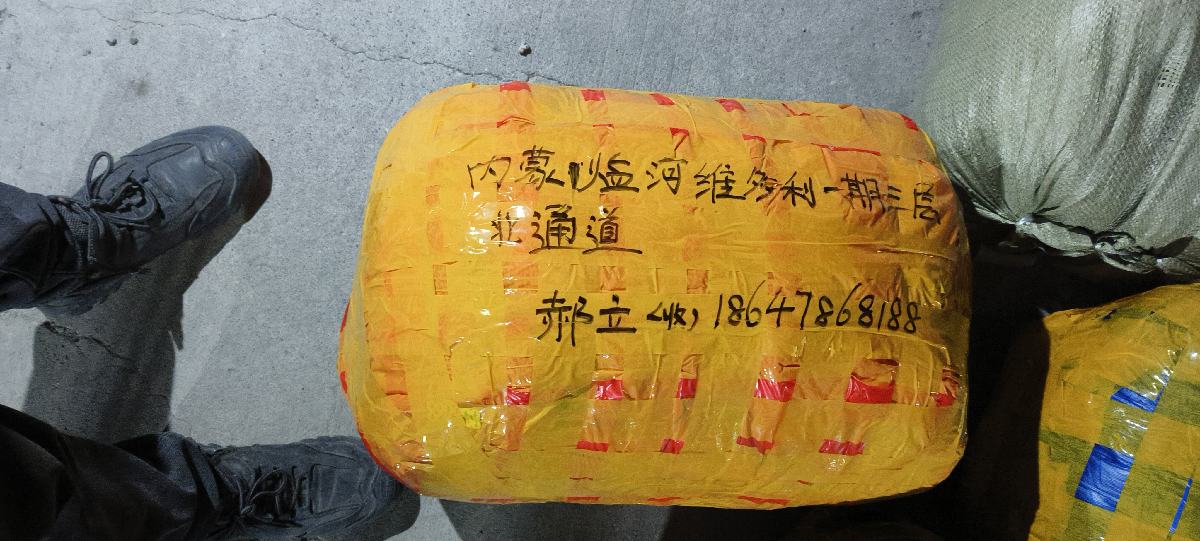 内蒙临河维多利一期三层
北通道
郝立(收)18647868188